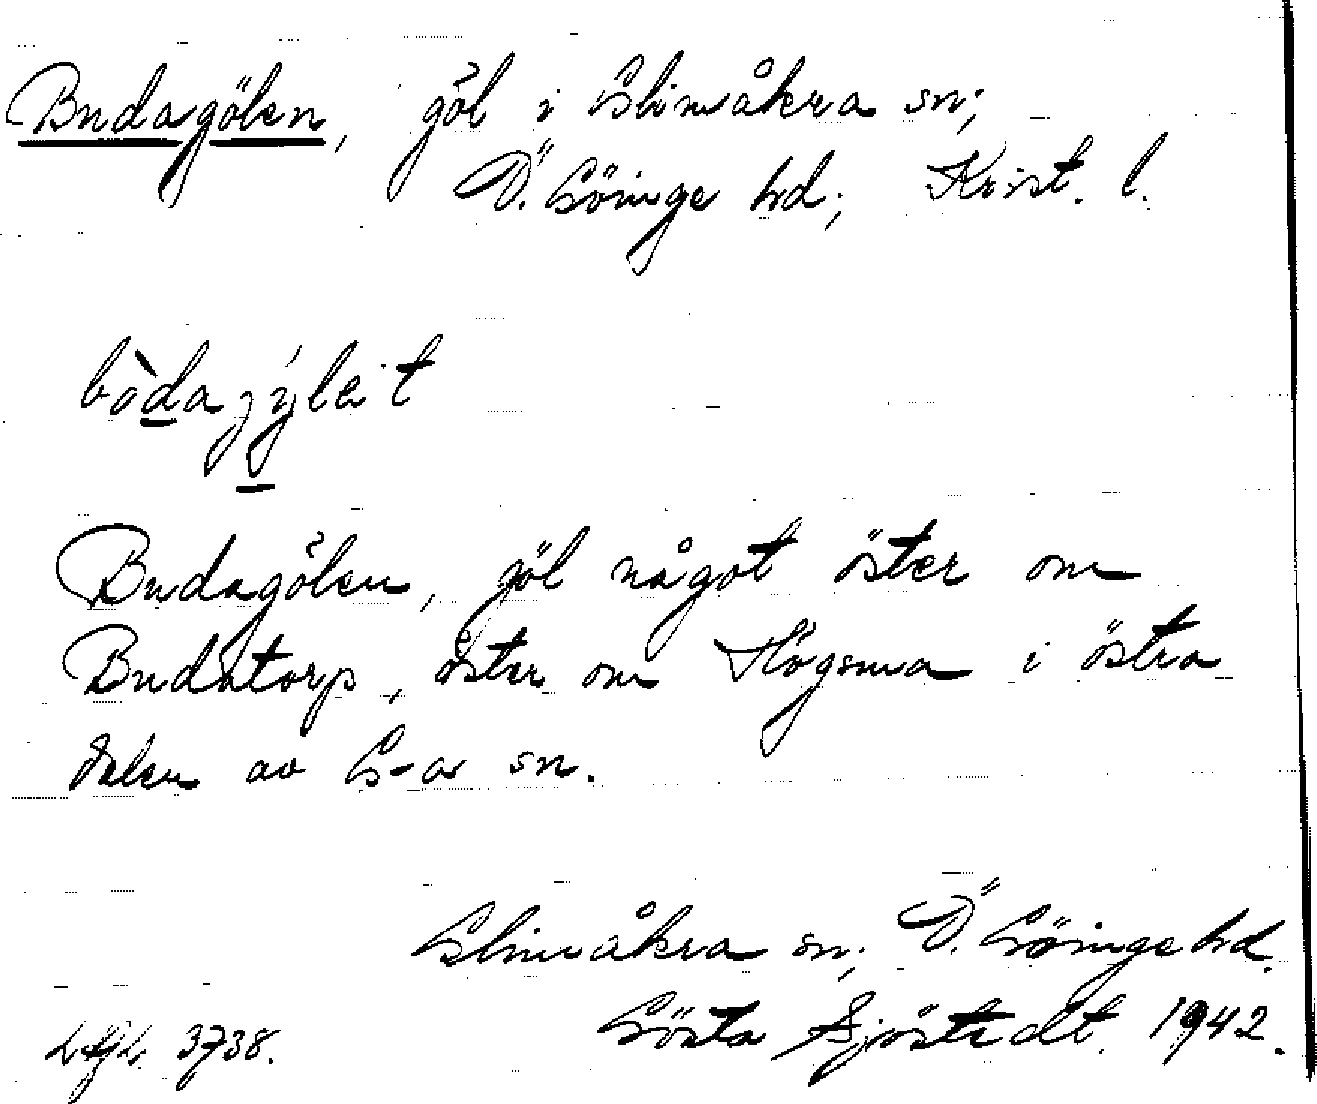 Budagölen, göl i Glimåkra sn;
Ö. Göinge hd; Krist. l.
Budagölen, göl något öster om
Budatorp, öster om Högsma i östra
delen av G-a sn.
Glimåkra sn; Ö. Göinge hd.
Gösta Sjöstedt. 1942.
3738.